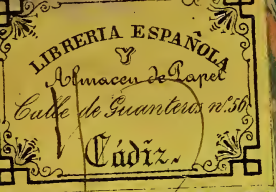 LIBRERIA ESPAÑOLA
Y
Almacen de Papel
Calle de Guanteros nº. 56
Cádiz.